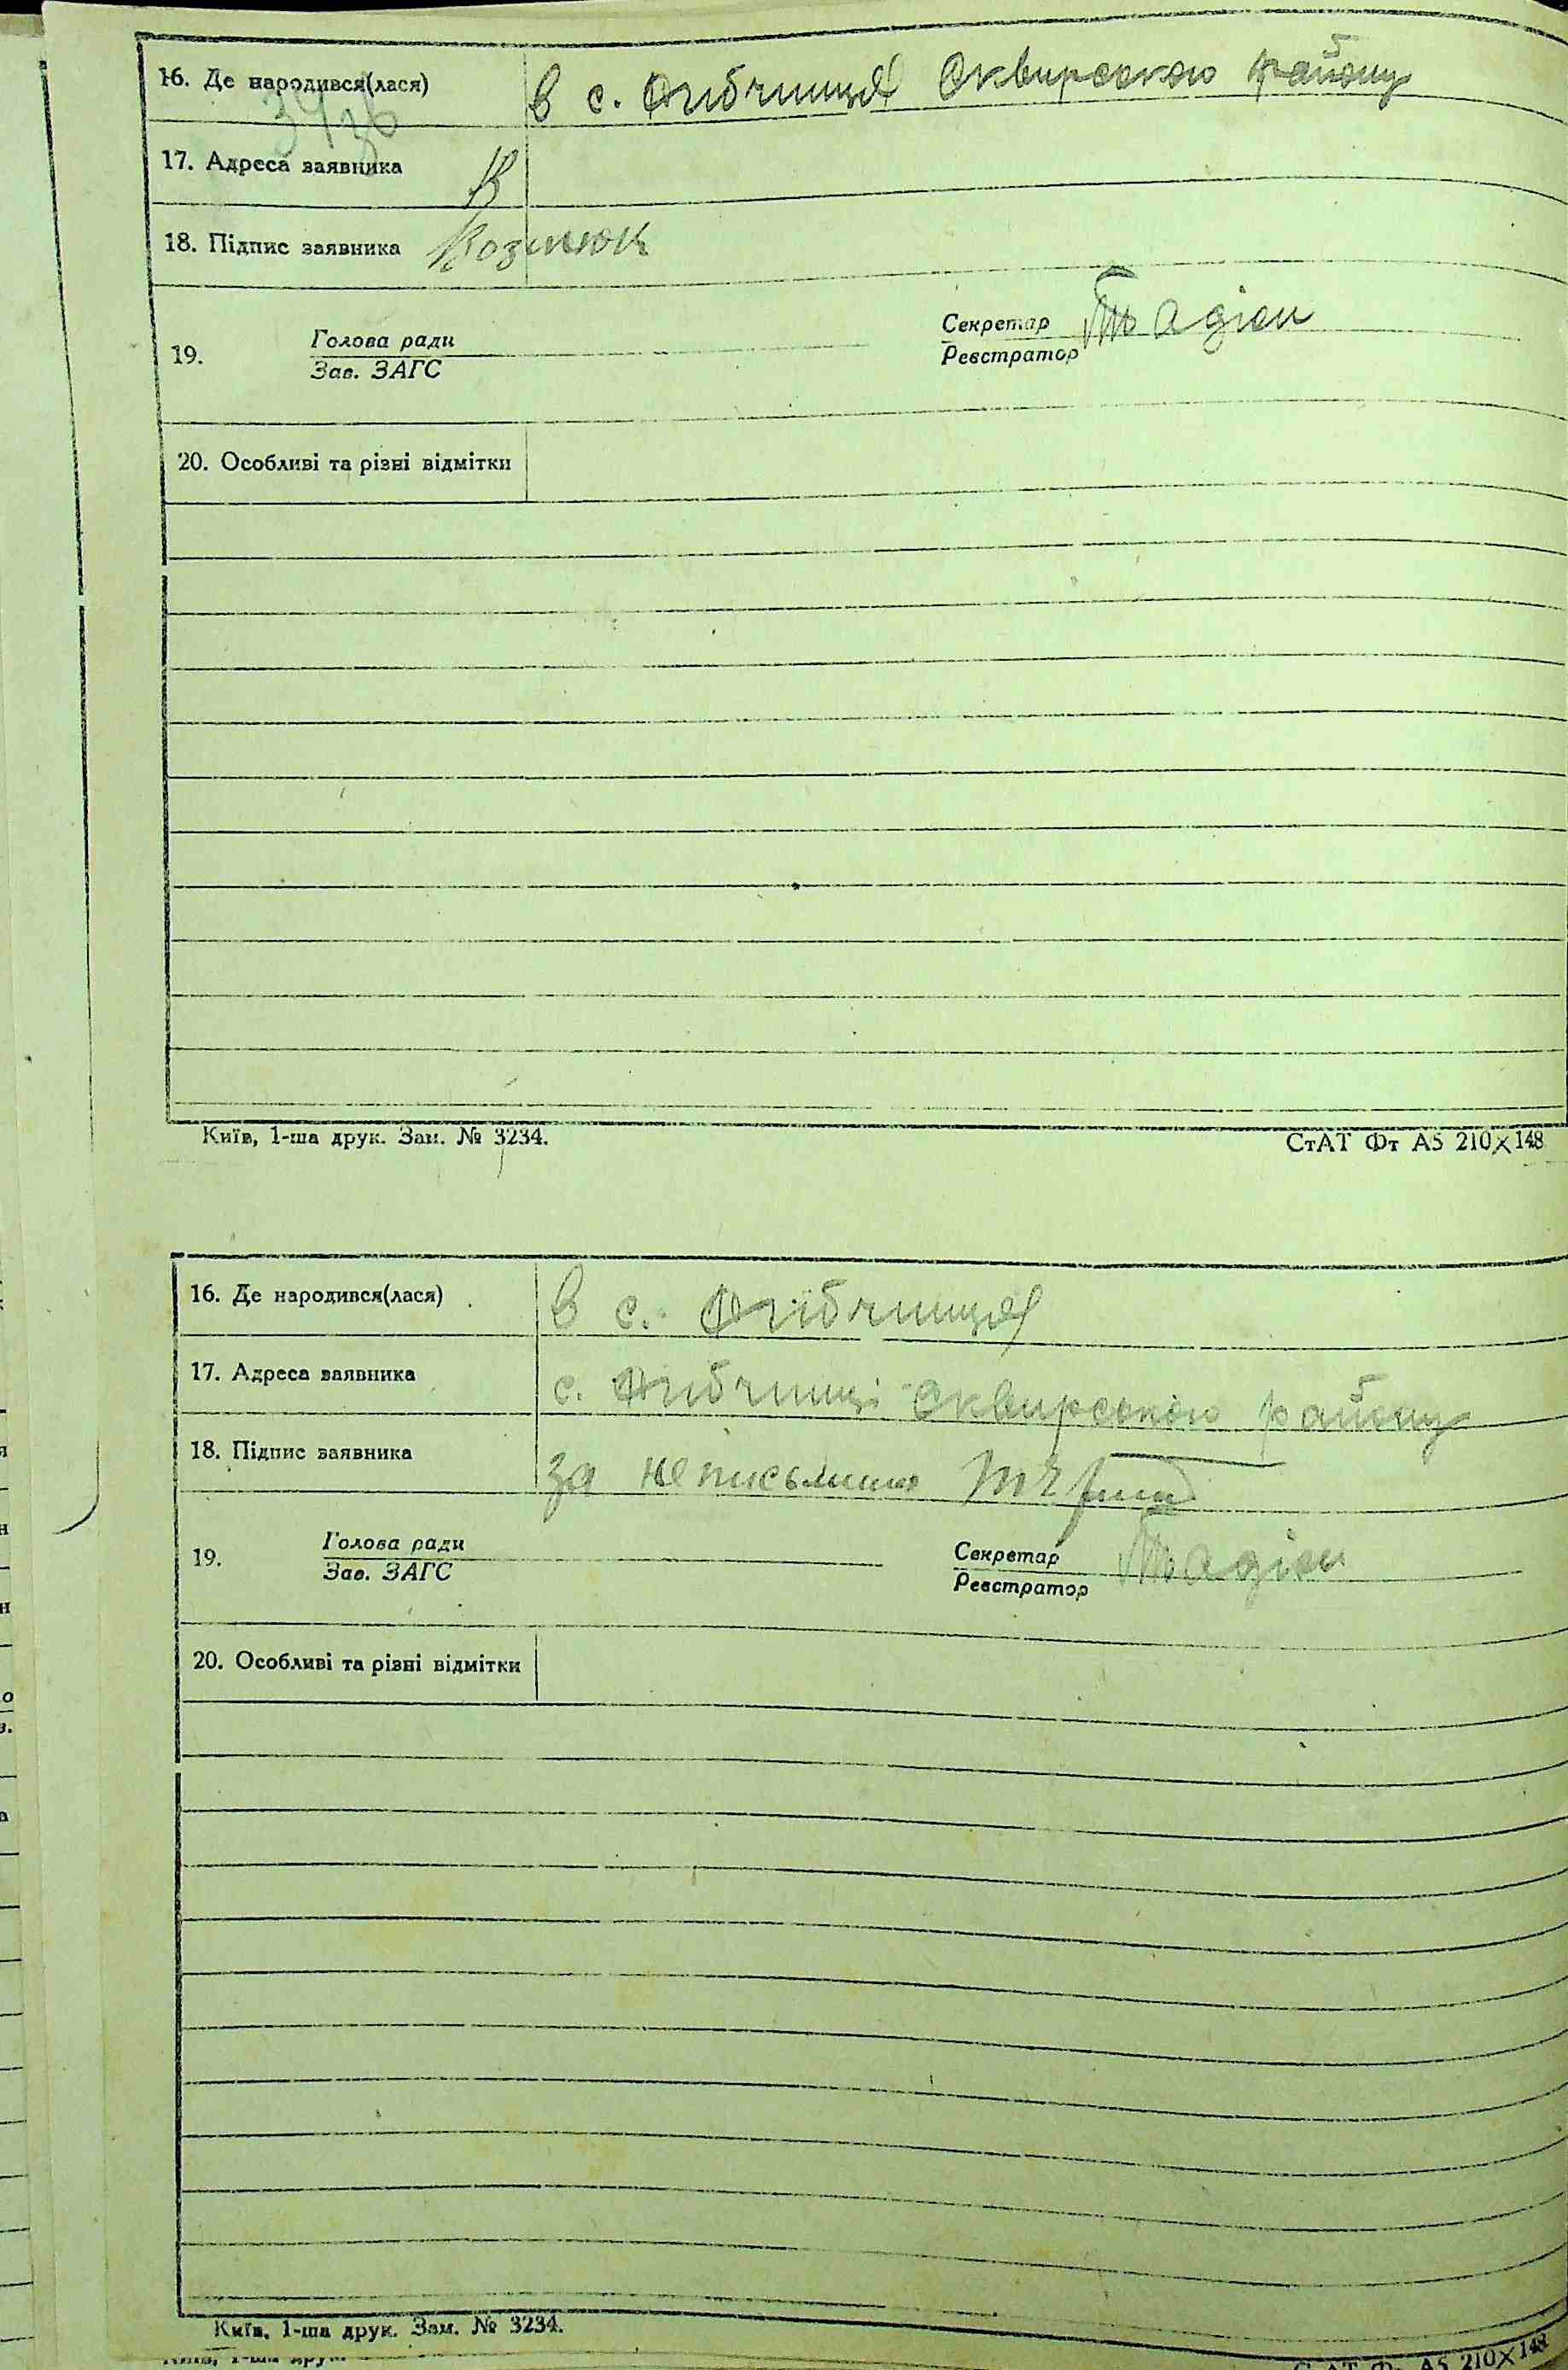 16. Де народився(лася) в с. Антонівці Сквирського району
17. Адреса заявника
18. Підпис заявника Козинюк
19. Голова ради Секретар
Зав. ЗАГС Реєстратор
20. Особливі та різні відмітки
Київ, 1-ша друк. Зам. № 3234. СтАТ Фт А5 210×148
16. Де народився(лася) в с.
17. Адреса заявника с. Сквирського району
18. Підпис заявника за неписьмен
19. Голова ради Секретар
Зав. ЗАГС Реєстратор
20. Особливі та різні відмітки
Київ, 1-ша друк. Зам. № 3234.
СтАТ Фт А5 210×148